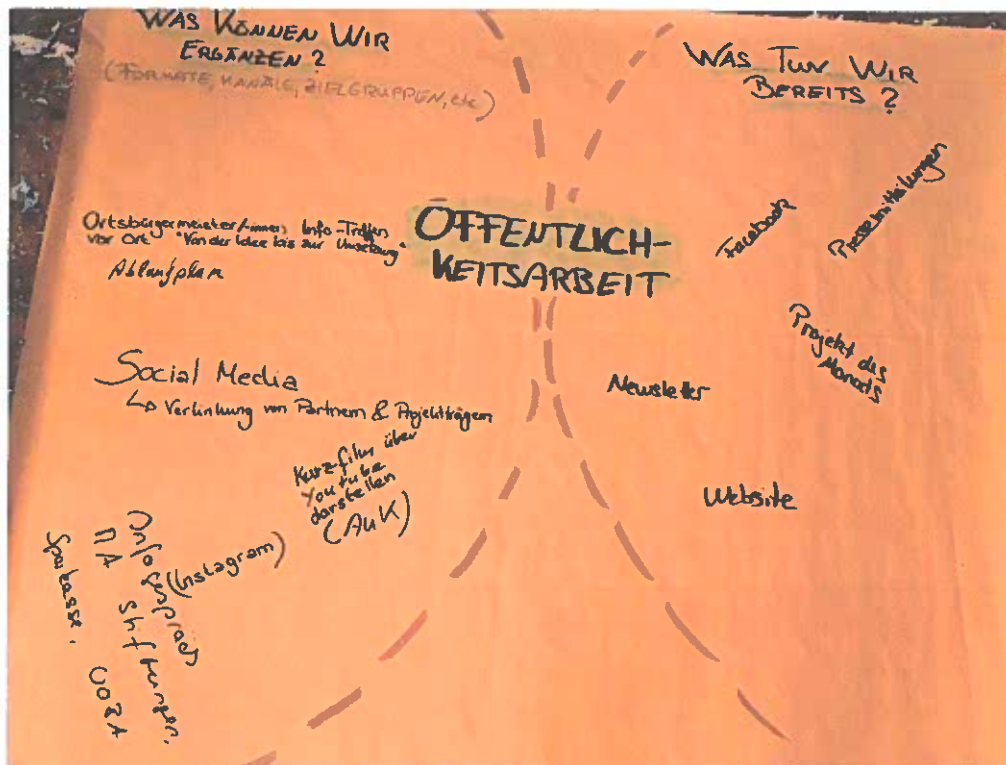 WAS KÖNNEN WIR
ERGÄNZEN?
(FORMATE, KANÄLE, ZIELGRUPPEN, etc)
WAS TUN WIR
BEREITS?
ÖFFENTLICH-
KEITSARBEIT
Ortsbürgermeister/-innen Info-Treffen
vor Ort "Von der Idee bis zur Umsetzung"
Ablaufplan
Social Media
↳ Verlinkung von Partnern & Projektträgern
Kurzfilm über
Youtube
darstellen
(AuK)
(Instagram)
Infogespräch
MA Stiftungen,
Sparkasse, VOBA
Facebook
Pressemitteilungen
Projekt des
Monats
Newsletter
Website